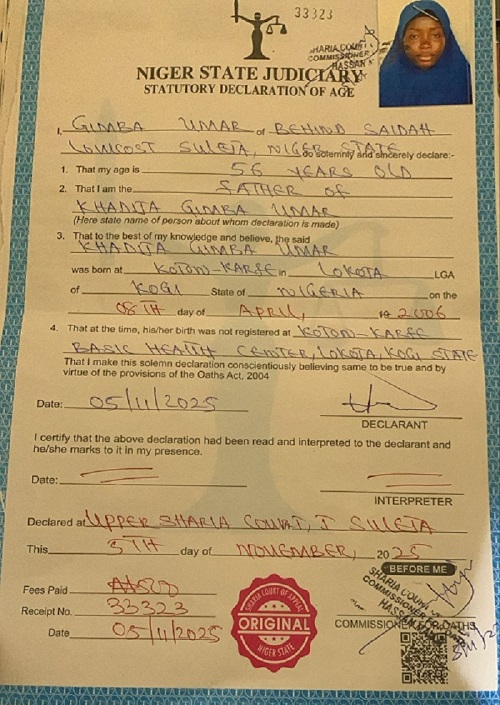 33323
SHARIA COURT
COMMISSIONER
HASSAN
NIGER STATE JUDICIARY
STATUTORY DECLARATION OF AGE
I, GIMBA UMAR of BEHIND SAIDAH
LOWCOST SULEJA, NIGER STATE do solemnly and sincerely declare:-
1. That my age is 56 YEARS OLD
2. That I am the FATHER OF
KHADIJA GIMBA UMAR
(Here state name of person about whom declaration is made)
3. That to the best of my knowledge and believe, the said
KHADIJA GIMBA UMAR
was born at KOTON-KARFE in LOKOJA LGA
of KOGI State of NIGERIA on the
08TH day of APRIL, 19 2006
4. That at the time, his/her birth was not registered at KOTON-KARFE
BASIC HEALTH CENTER, LOKOJA, KOGI STATE
That I make this solemn declaration conscientiously believing same to be true and by
virtue of the provisions of the Oaths Act, 2004
Date: 05/11/2025
DECLARANT
I certify that the above declaration had been read and interpreted to the declarant and
he/she marks to it in my presence.
Date:
INTERPRETER
Declared at UPPER SHARIA COURT, I SULEJA
This 5TH day of NOVEMBER, 2025
BEFORE ME
SHARIA COURT
COMMISSIONER FOR OATHS
HASSAN
Fees Paid ₦500
Receipt No. 33323
COMMISSIONER FOR OATHS
Date 05/11/2025
SHARIA COURT OF APPEAL
ORIGINAL
NIGER STATE